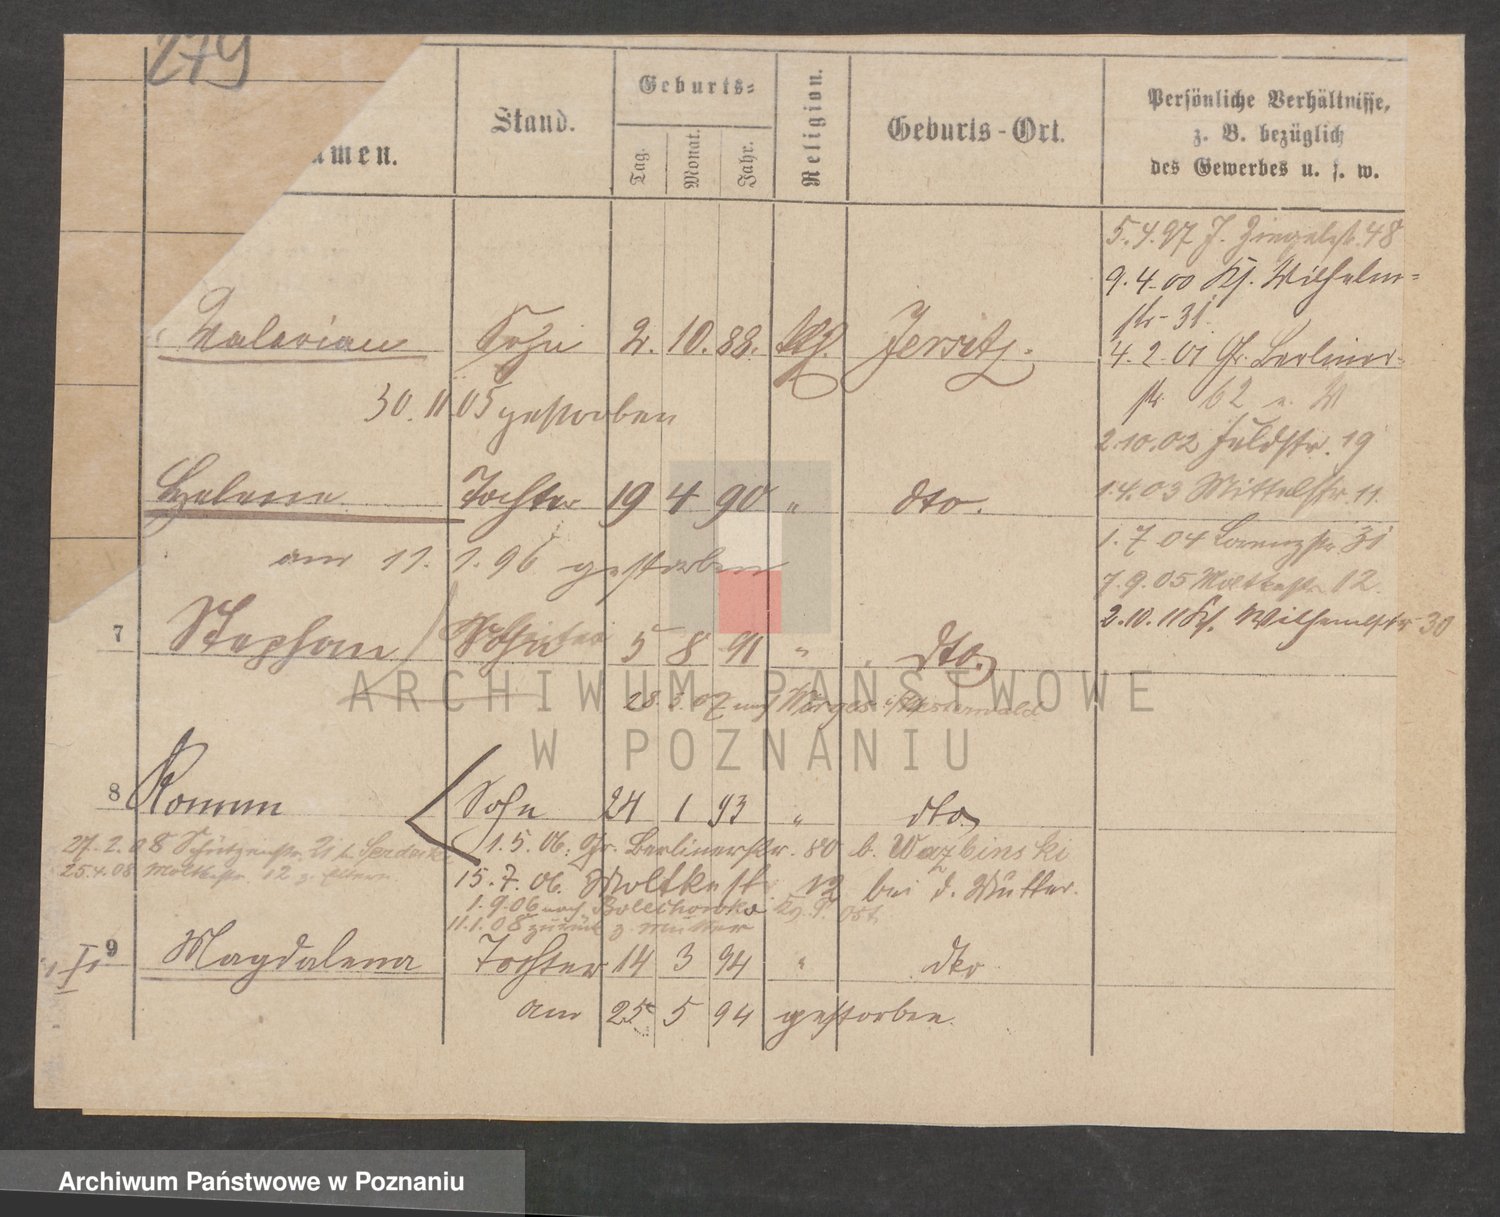 279
Namen.
Stand.
Geburts-
Tag.
Monat.
Jahr.
Religion.
Geburts-Ort.
Persönliche Verhältnisse,
z. B. bezüglich
des Gewerbes u. s. w.
5.4.97 J. Ziegelstr. 48
9.4.00 Wilhelm-
str. 31.
4.2.01 Gr. Berliner-
str. 62
2.10.02 Feldstr. 19
1.4.03 Mittelstr. 11
1.7.04 Lorenzstr. 31
7.9.05 Moltkestr. 12.
2.10.11 Wilhelmstr. 30
Valerian Sohn 2. 10. 88. Jersitz.
30.11.05 gestorben
Helene Tochter 19 4 90 " dto.
am 11. 1. 96 gestorben
7 Stephan Sohn 5 8 91 " dto.
28.3.07 nach Wirges Westerwald
8 Roman Sohn 24 1 93 " dto.
1.5.06. Gr. Berlinerstr. 80 b. Wazbinski
27.2.08 Schützenstr. 21 b.
25.4.08 Moltkestr. 12 z. Eltern.
15.7.06. Moltkestr. 12 bei d. Mutter.
1.9.06 nach
11.1.08 zurück z. Mutter
9 Magdalena Tochter 14 3 94 " dto
am 25 5 94 gestorben.
ARCHIWUM PAŃSTWOWE
W POZNANIU
Archiwum Państwowe w Poznaniu